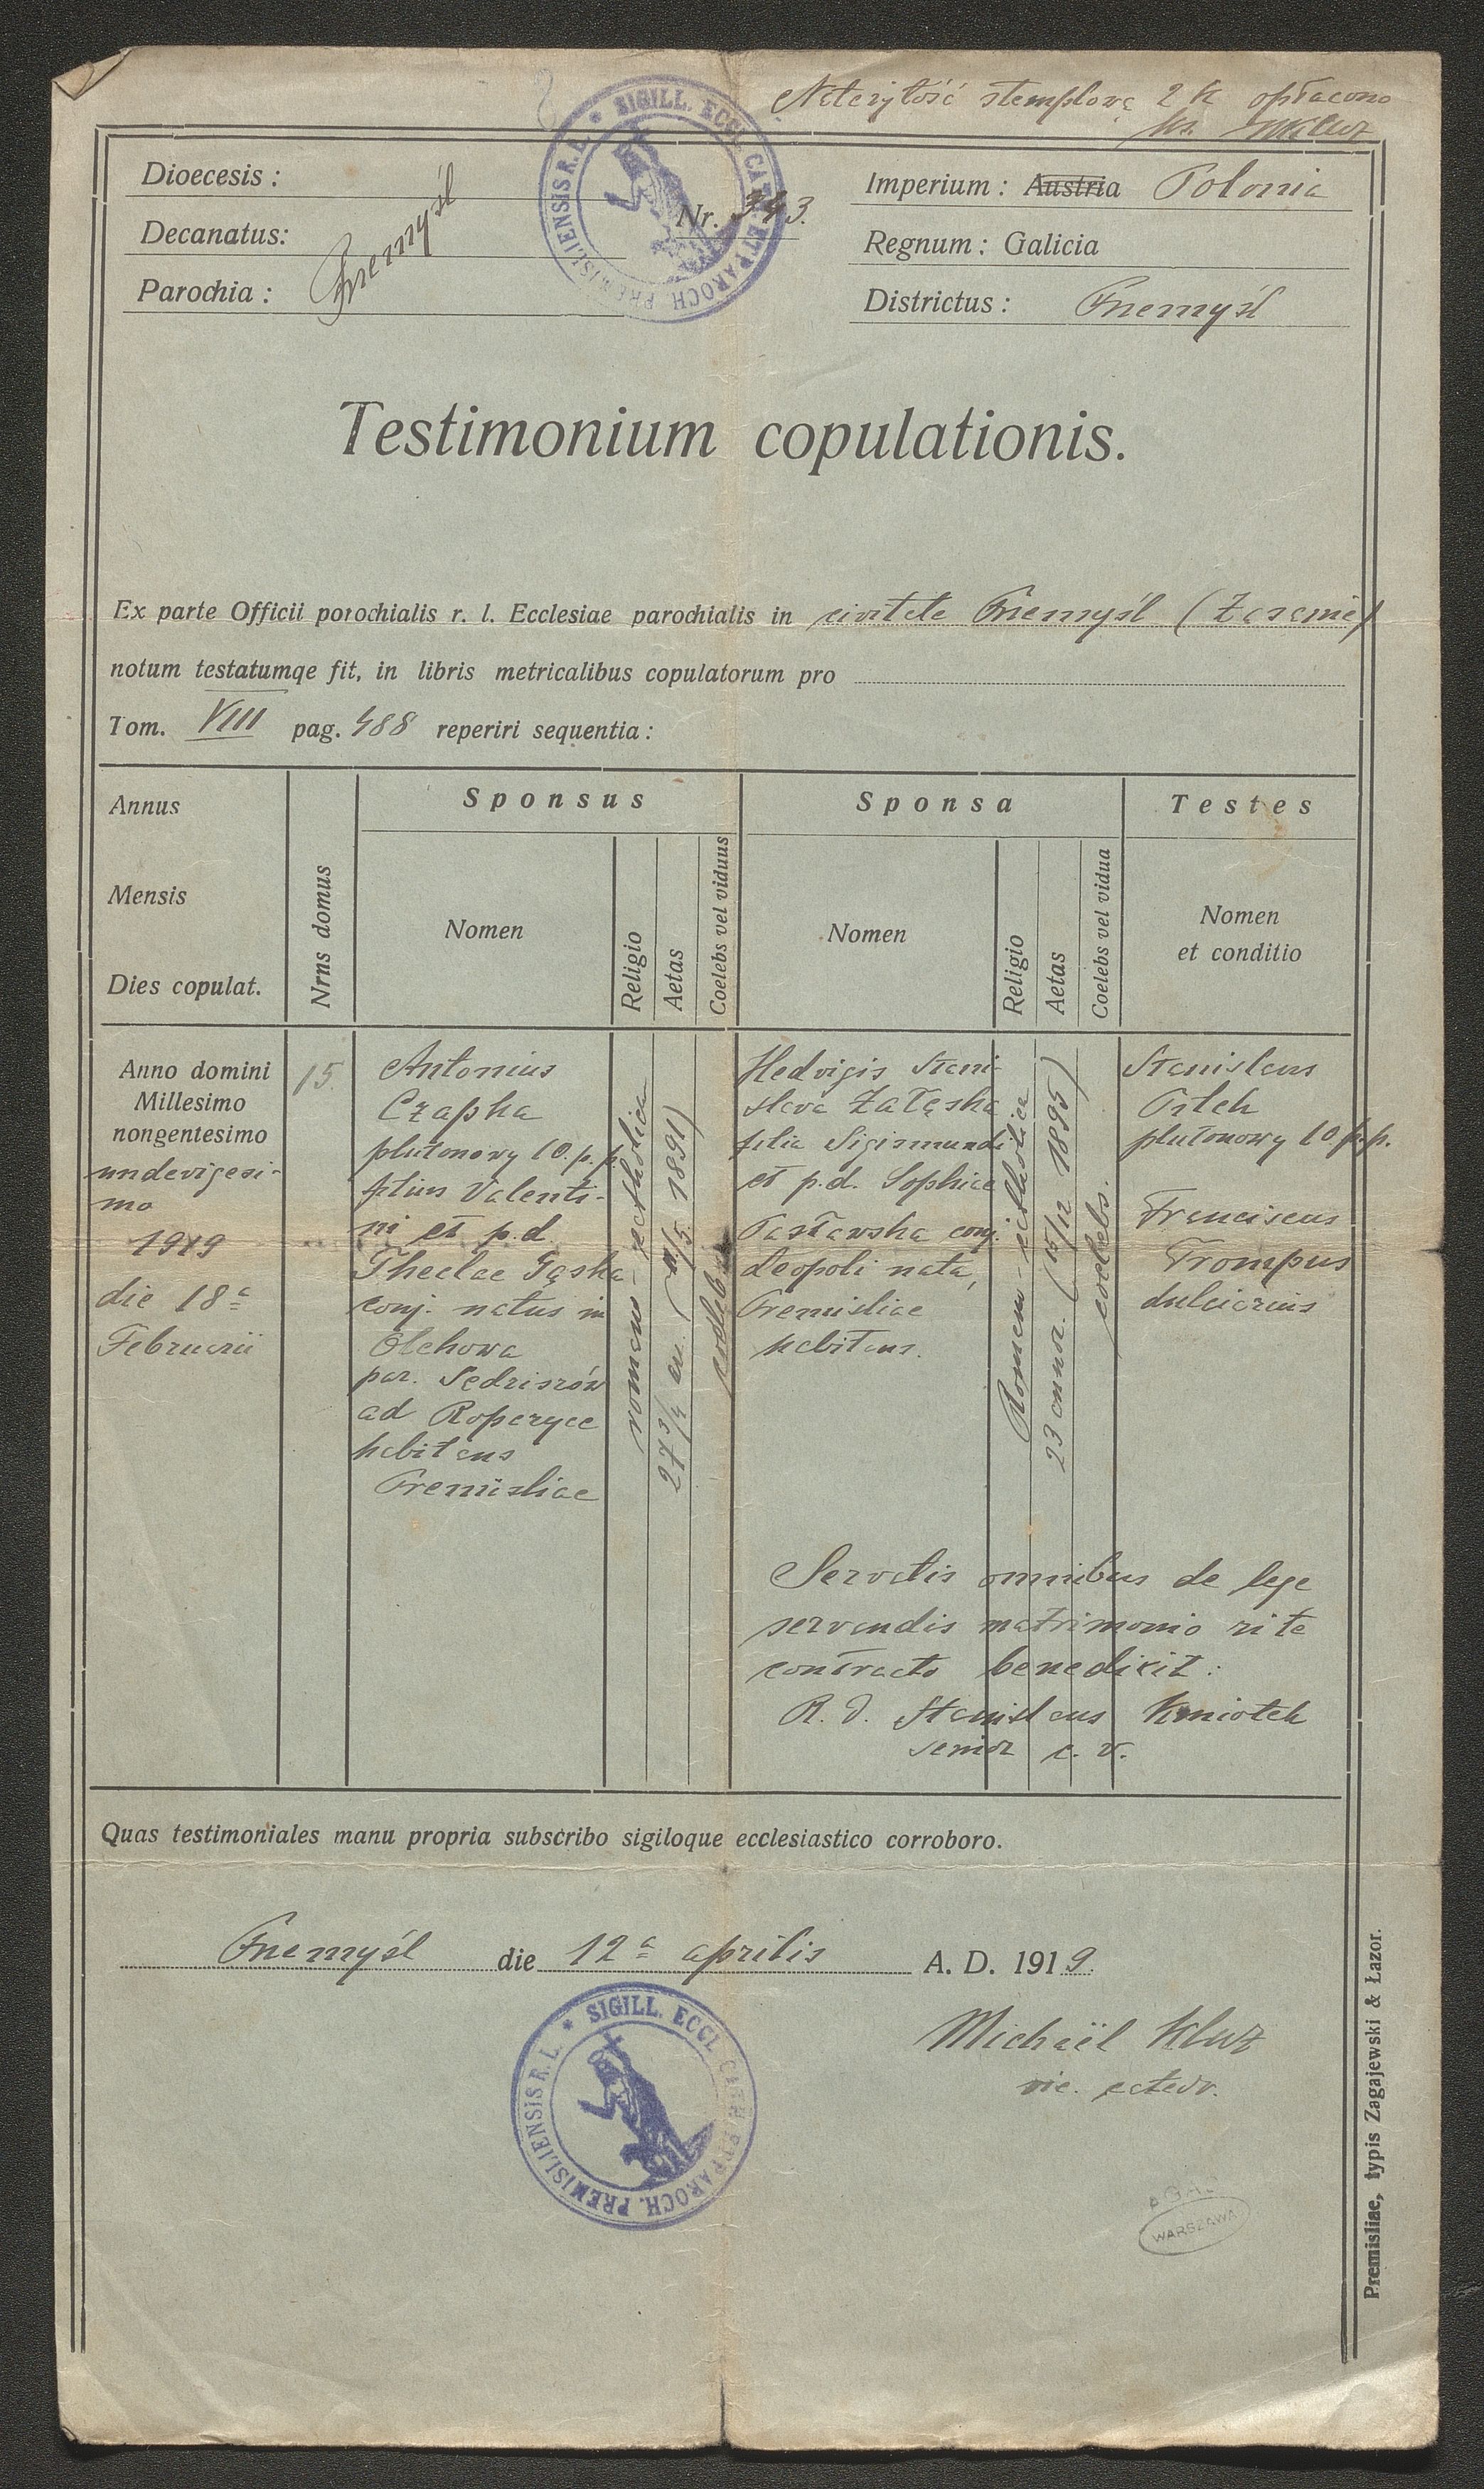 Należytość stemplową 2 K opłacono
ks. MKluz
SIGILL. ECCL. CATH. ET PAROCH. PREMISLIENSIS R. L.
Dioecesis :
Decanatus:
Parochia :
Przemyśl
Nr. 343.
Imperium : Austria Polonia
Regnum : Galicia
Districtus : Przemyśl
Testimonium copulationis.
Ex parte Officii porochialis r. l. Ecclesiae parochialis in civitate Przemyśl (Zasanie)
notum testatumqe fit, in libris metricalibus copulatorum pro
Tom. VIII pag. 488 reperiri sequentia :
Annus
Mensis
Dies copulat.
Nrns domus
Sponsus
Nomen
Religio
Aetas
Coelebs vel viduus
Sponsa
Nomen
Religio
Aetas
Coelebs vel vidua
Testes
Nomen
et conditio
Anno domini
Millesimo
nongentesimo
undevigesi-
mo
1919
die 18a
Februarii
15.
Antonius
Czapka
plutonowy 10. p. p.
filius Valenti-
ni et p. d.
Theclae Gąska
conj. natus in
Olchowa
par. Sędziszów
ad Ropczyce
habitans
Premisliae
romano-catholica
27 3/4 an. ( /5. 1891)
coelebs
Hedvigis Stani-
slava Załęska
filia Sigismundi
et p. d. Sophiae
Pasławska conj.
Leopoli nata,
Premisliae
habitans.
Romano-catholica
23 annor. (15/12 1895)
coelebs.
Stanislaus
Ptak
plutonowy 10. p. p.
Franciscus
Trompus
dulciarius
Servatis omnibus de lege
servandis matrimonio rite
contracto benedixit :
R. D. Stanislaus Kmiotek
senior c. v.
Quas testimoniales manu propria subscribo sigiloque ecclesiastico corroboro.
Przemyśl die 12a aprilis A. D. 1919.
SIGILL. ECCL. CATH. ET PAROCH. PREMISLIENSIS R. L.
Michaël Kluz
vic. catedr.
WARSZAWA
Premisliae, typis Zagajewski & Łazor.